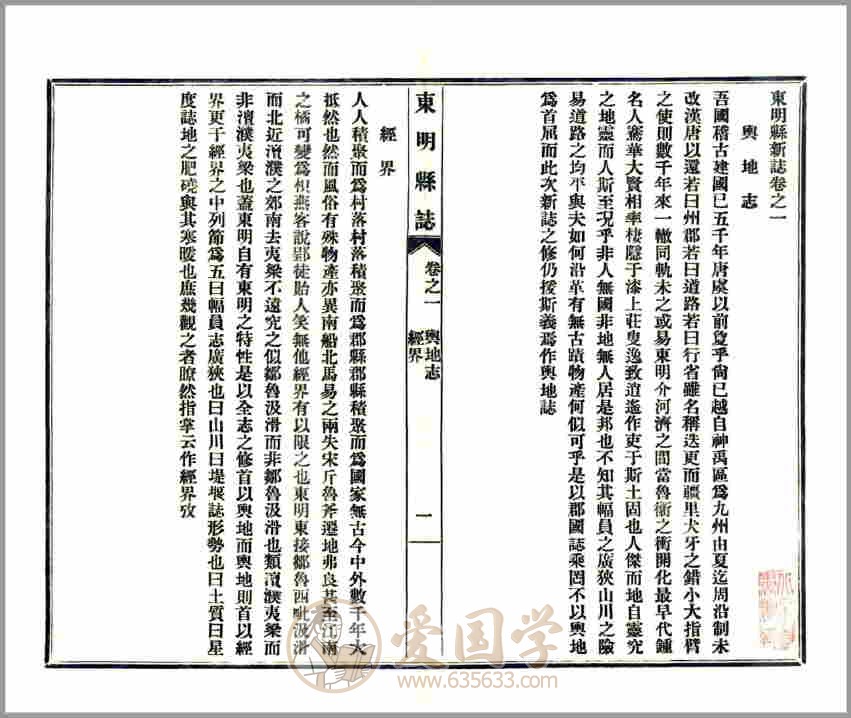 東明縣新誌卷之一
輿地志
吾國稽古建國已五千年唐虞以前敻乎尙已越自神禹區爲九州由夏迄周沿制未
改漢唐以還若曰州郡若曰道路若曰行省雖名稱迭更而疆里犬牙之錯小大指臂
之使則數千年來一轍同軌未之或易東明介河濟之間當魯衞之衝開化最早代鍾
名人騫華大賢相率棲隱于漆上莊叟逸致逍遙作吏于斯土固也人傑而地自靈究
之地靈而人斯至況乎非人無國非地無人居是邦也不知其幅員之廣狹山川之險
易道路之均平與夫如何沿革有無古蹟物產何似可乎是以郡國誌乘罔不以輿地
爲首屈而此次新誌之修仍援斯義焉作輿地誌
東明縣誌
卷之一
輿地志
經界
一
經界
人人積聚而爲村落村落積聚而爲郡縣郡縣積聚而爲國家無古今中外數千年大
抵然也然而風俗有殊物產亦異南船北馬易之兩失宋斤魯斧遷地弗良甚至江南
之橘可變爲枳燕客說郢徒貽人笑無他經界有以限之也東明東接鄒魯西毗汲滑
而北近澶濮之郊南去夷梁不遠究之似鄒魯汲滑而非鄒魯汲滑也類澶濮夷梁而
非澶濮夷梁也蓋東明自有東明之特性是以全志之修首以輿地而輿地則首以經
界更于經界之中列節爲五曰幅員志廣狹也曰山川曰堤堰誌形勢也曰土質曰星
度誌地之肥磽與其寒暖也庶幾觀之者瞭然指掌云作經界攷
爱国学
www.635633.com